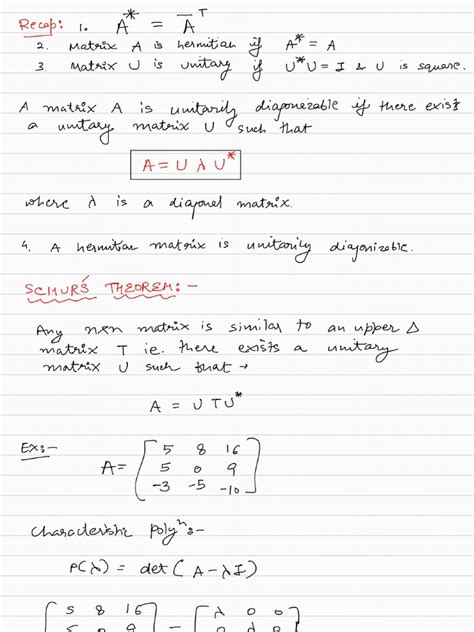 Recap: 1. A* = A̅ᵀ
2. Matrix A is hermitian if A* = A
3. Matrix U is unitary if U*U = I & U is square.
A matrix A is unitarily diagonezable if there exists
a unitary matrix U such that
A = U λ U*
where λ is a diagonal matrix.
4. A hermitian matrix is unitarily diagonizable.
SCHUR'S THEOREM:-
Any nxn matrix is similar to an upper Δ
matrix T ie. there exists a unitary
matrix U such that →
A = U T U*
Ex:-
A= [5 8 16
5 0 9
-3 -5 -10]
Characteristic polyⁿ:-
P(λ) = det (A - λI)
[5 8 16] - [λ 0 0